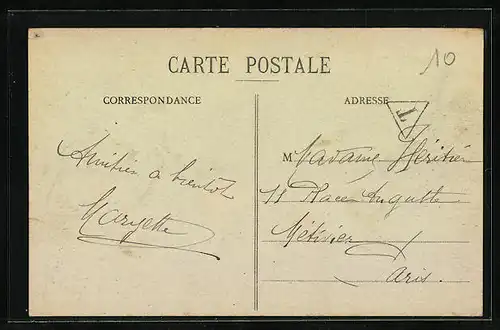 10
CARTE POSTALE
CORRESPONDANCE
ADRESSE
T
Amitiés a bientot
Maryette
M Madame Héritier
11 Place Auguste
Métivier
Paris.